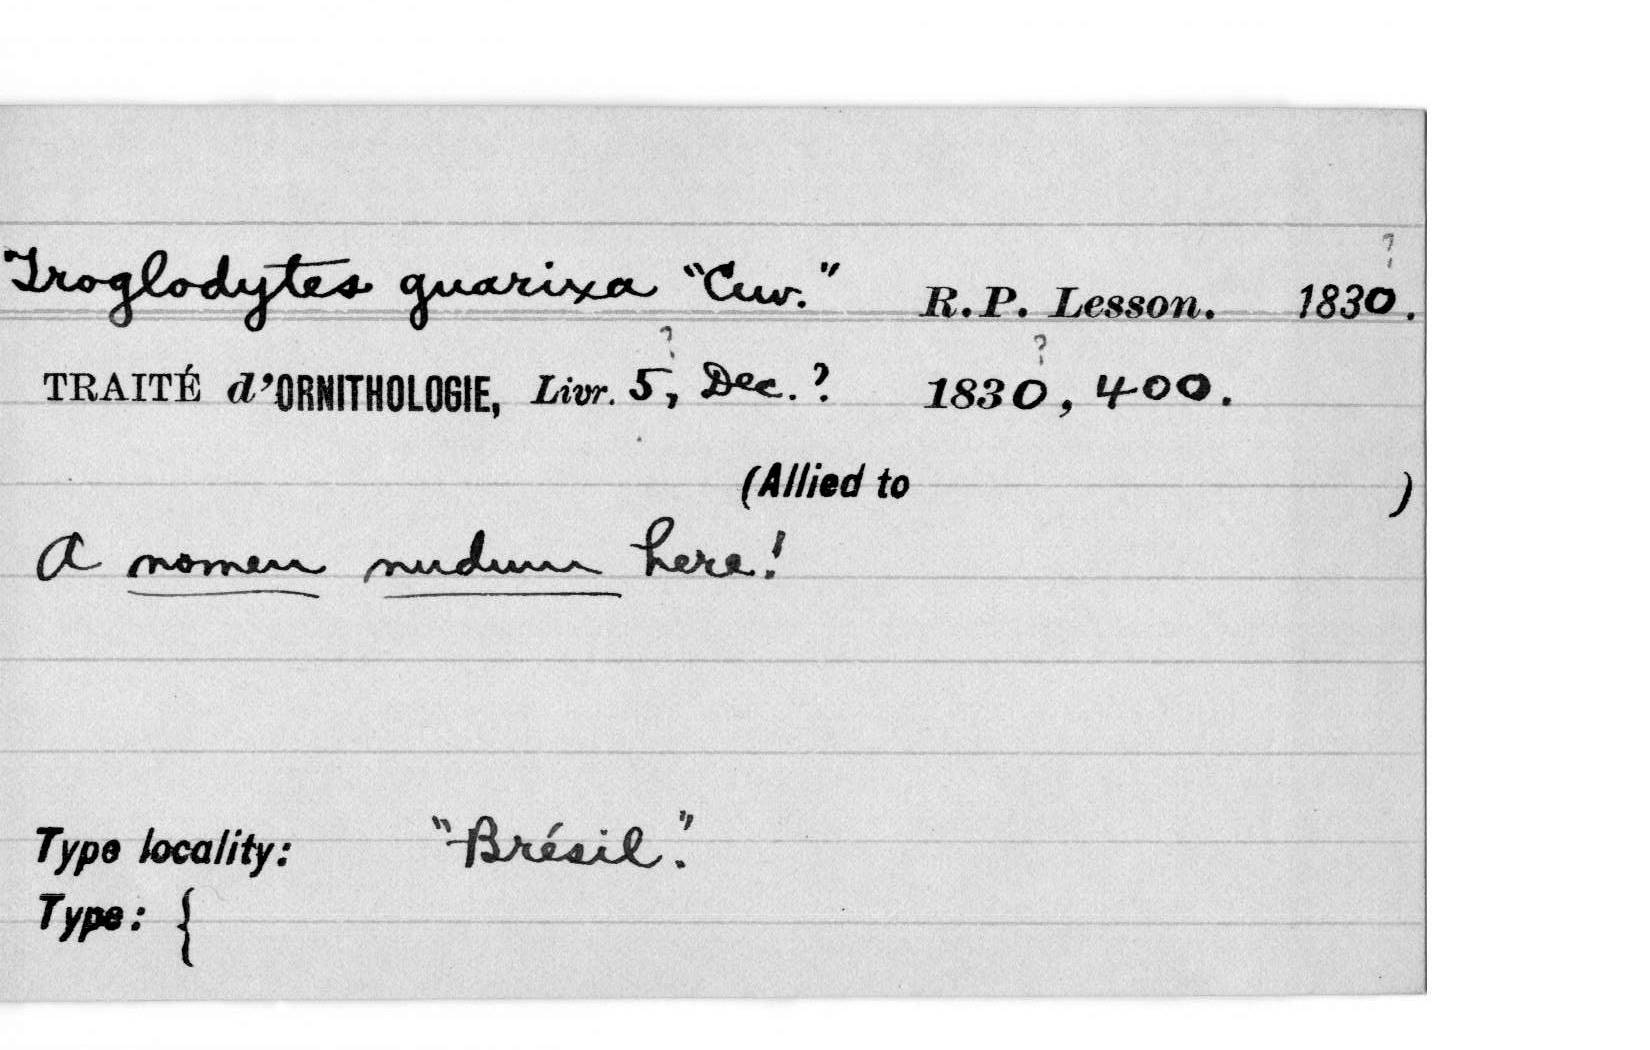 Troglodytes guarixa "Cuv." R.P. Lesson. 1830?.
TRAITÉ d'ORNITHOLOGIE, Livr. 5?, Dec.? 1830?, 400.
(Allied to )
A nomen nudum here!
Type locality: "Brésil."
Type: {